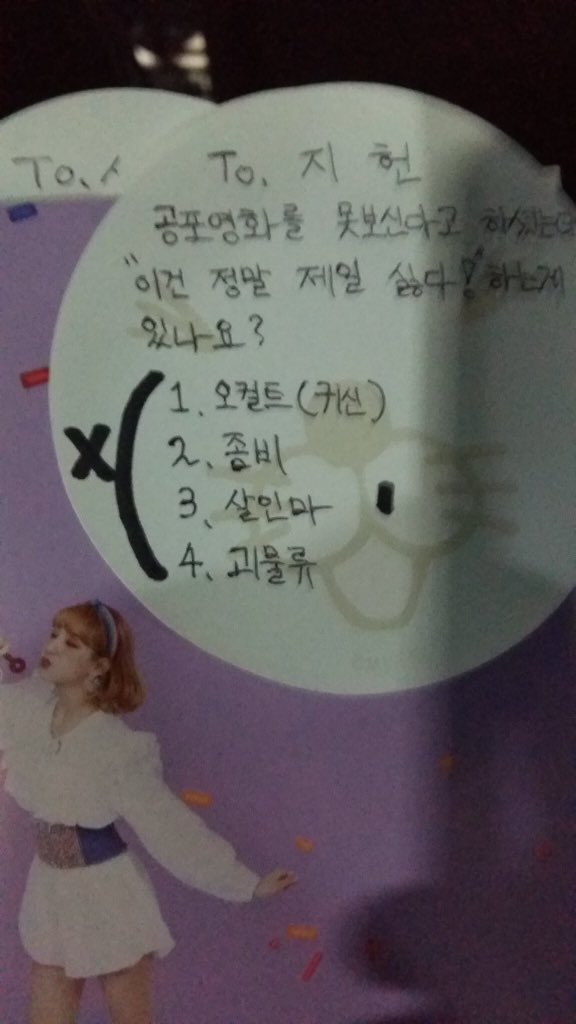 To. ㅅ
To. 지헌
공포영화를 못보신다고 하셨는데
"이건 정말 제일 싫다!" 하는게
있나요?
X
1. 오컬트(귀신)
2. 좀비
3. 살인마
4. 괴물류